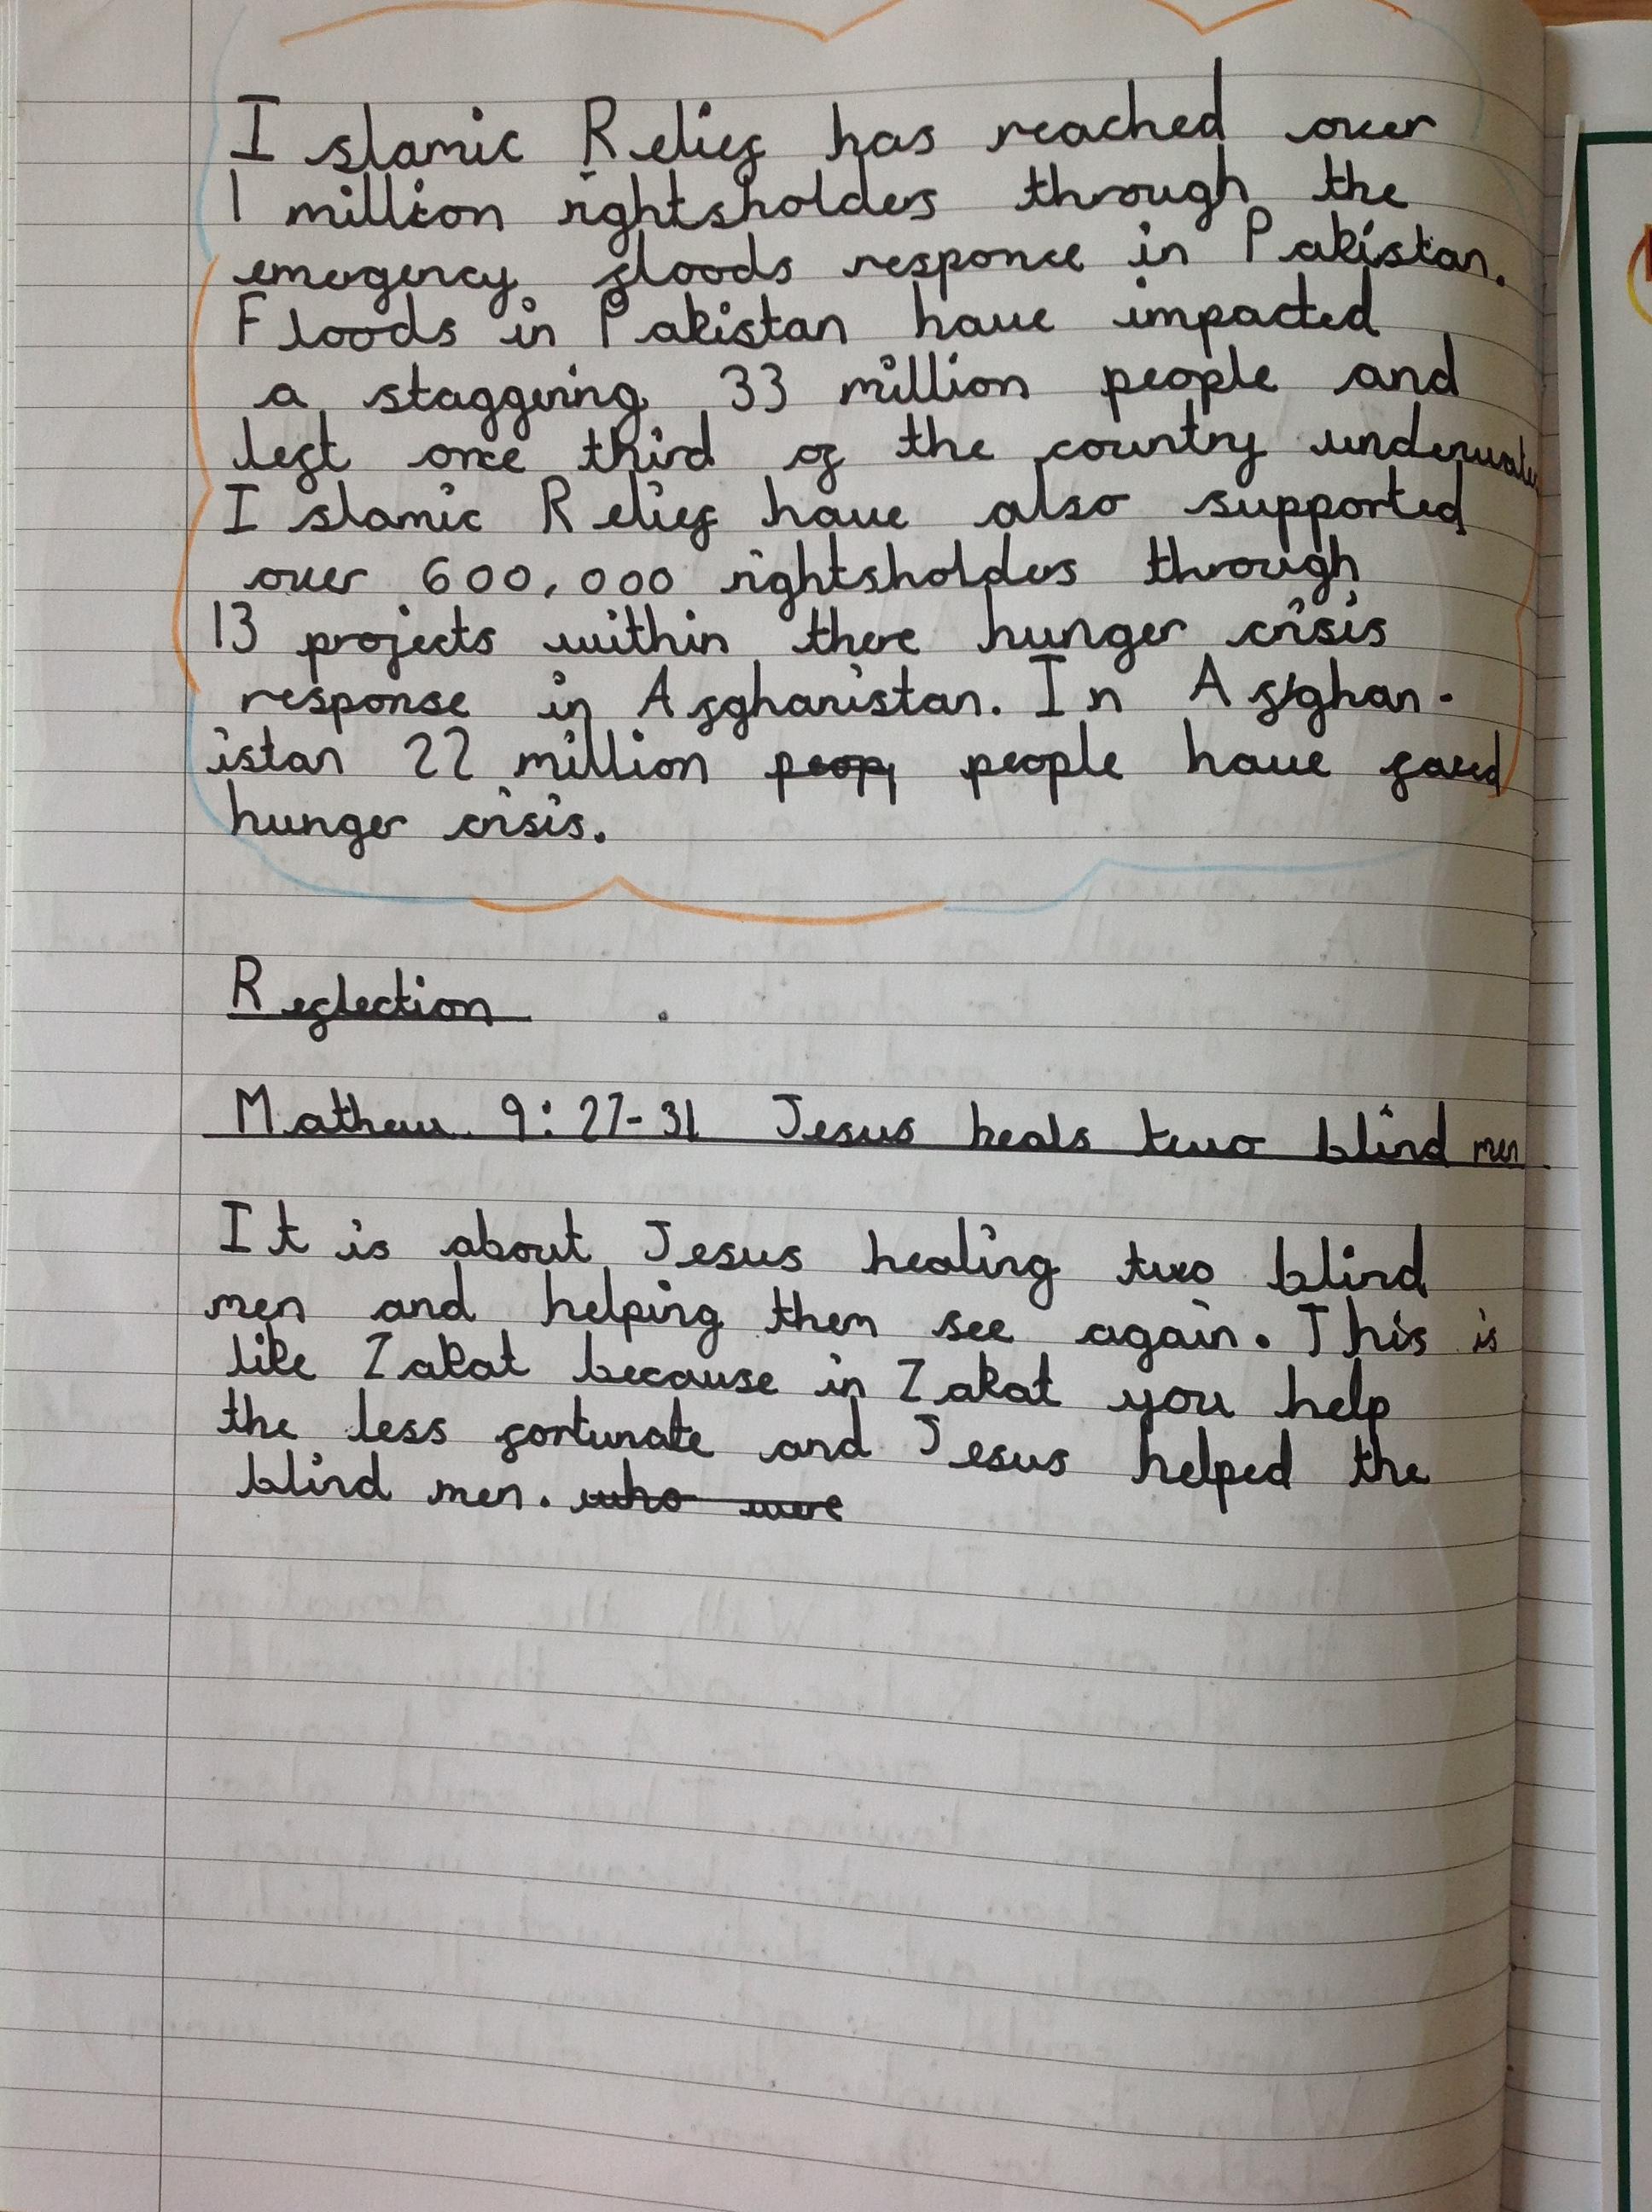 Islamic Relief has reached over
1 million rightsholders through the
emergency floods responce in Pakistan.
Floods in Pakistan have impacted
a staggering 33 million people and
left one third of the country underwater
Islamic Relief have also supported
over 600,000 rightsholders through
13 projects within there hunger crisis
response in Afghanistan. In Afghan-
istan 22 million peop people have faced
hunger crisis.
Reflection
Mathew 9:27-31 Jesus heals two blind men
It is about Jesus healing two blind
men and helping them see again. This is
like Zakat because in Zakat you help
the less fortunate and Jesus helped the
blind men. who were